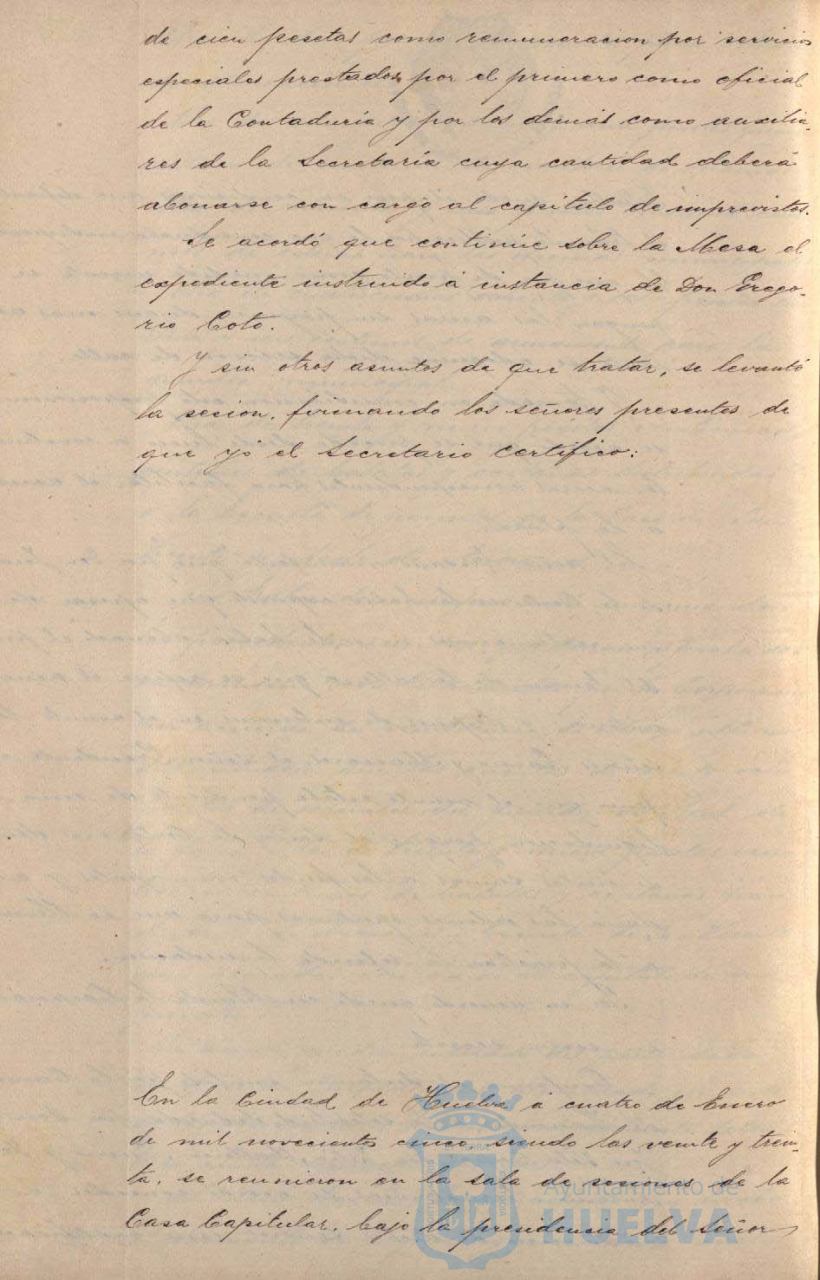 de cien pesetas como remuneracion por servicios
especiales prestados por el primero como oficial
de la Contaduría y por los demás como auxilia-
res de la Secretaría cuya cantidad deberá
abonarse con cargo al capítulo de imprevistos.
Se acordó que continúe sobre la Mesa el
expediente instruido á instancia de Don Grego-
rio Coto.
Y sin otros asuntos de que tratar, se levantó
la sesion, firmando los señores presentes de
que yó el Secretario certifico:
En la Ciudad de Huelva á cuatro de Enero
de mil novecientos cinco, siendo las veinte y trein-
ta, se reunieron en la sala de sesiones de la
Casa Capitular, bajo la presidencia del Señor
Ayuntamiento de
HUELVA